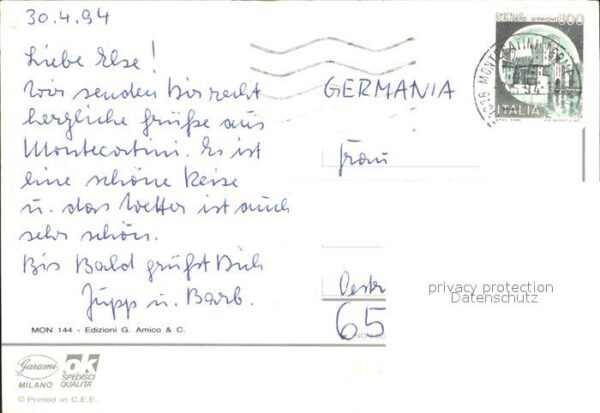 30.4.94
Liebe Else!
Wir senden Dir recht
herzliche Grüße aus
Montecatini. Es ist
eine schöne Reise
u. das Wetter ist auch
sehr schön.
Bis Bald grüßt Dich
Jupp u. Barb.
MON 144 - Edizioni G. Amico & C.
Garami
MILANO
ok
SPEDISCI
QUALITA'
© Printed in C.E.E.
CASTELLO
SCALIGERO SIRMIONE
800
ITALIA
MONTECATINI
GERMANIA
Frau
Oestr
65
privacy protection
Datenschutz